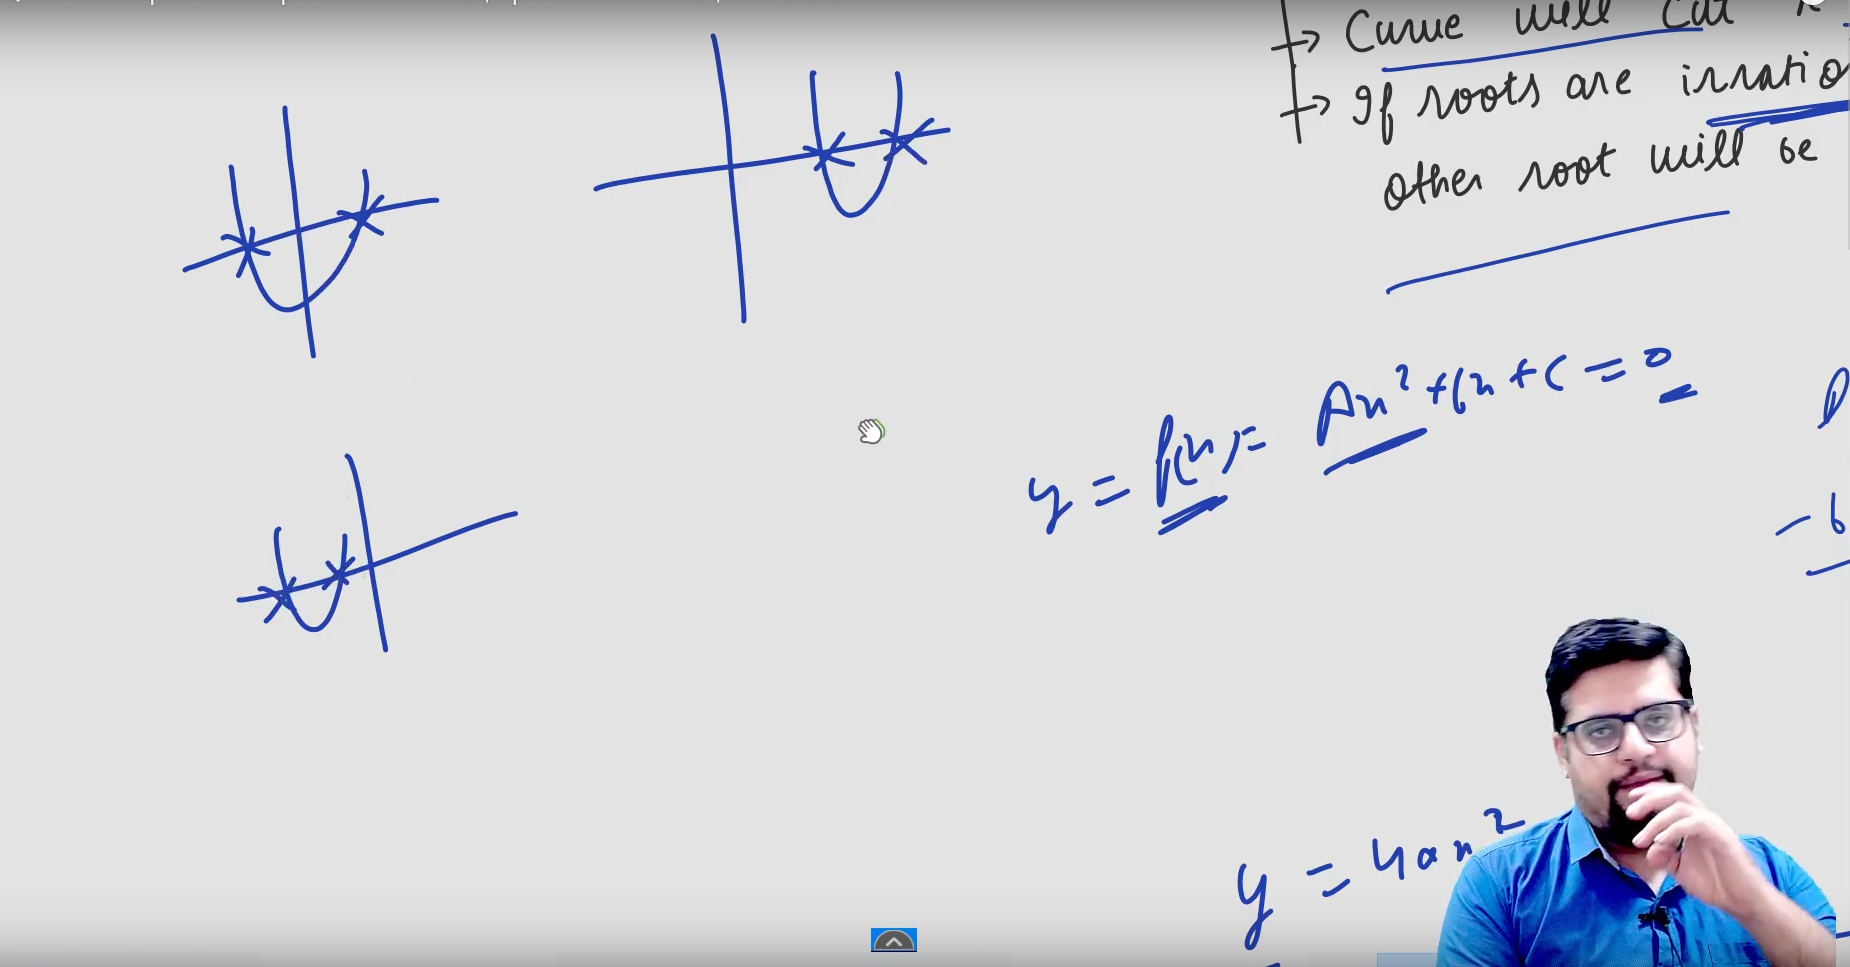 → Curve will cut
→ If roots are irratio
other root will be
y = f(x) = Ax² + bx + c = 0
- b
y = 4ax²